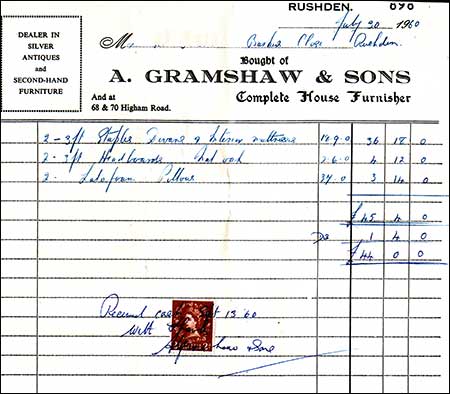 RUSHDEN. 090
July 30 1960
DEALER IN
SILVER
ANTIQUES
and
SECOND-HAND
FURNITURE
M Close Rushden.
Bought of
A. GRAMSHAW & SONS
And at
68 & 70 Higham Road.
Complete House Furnisher
2 - 3ft Staples Divans & Interior mattresses 18 9.0 36 18 0
2 - 3ft Headboards Nat oak 2.6.0 4 12 0
2 - Pillows 37.0 3 14 0
£45 4 0
1 4 0
£44 0 0
Received cash Sept 13 '60
With Thanks
A Gramshaw & Sons